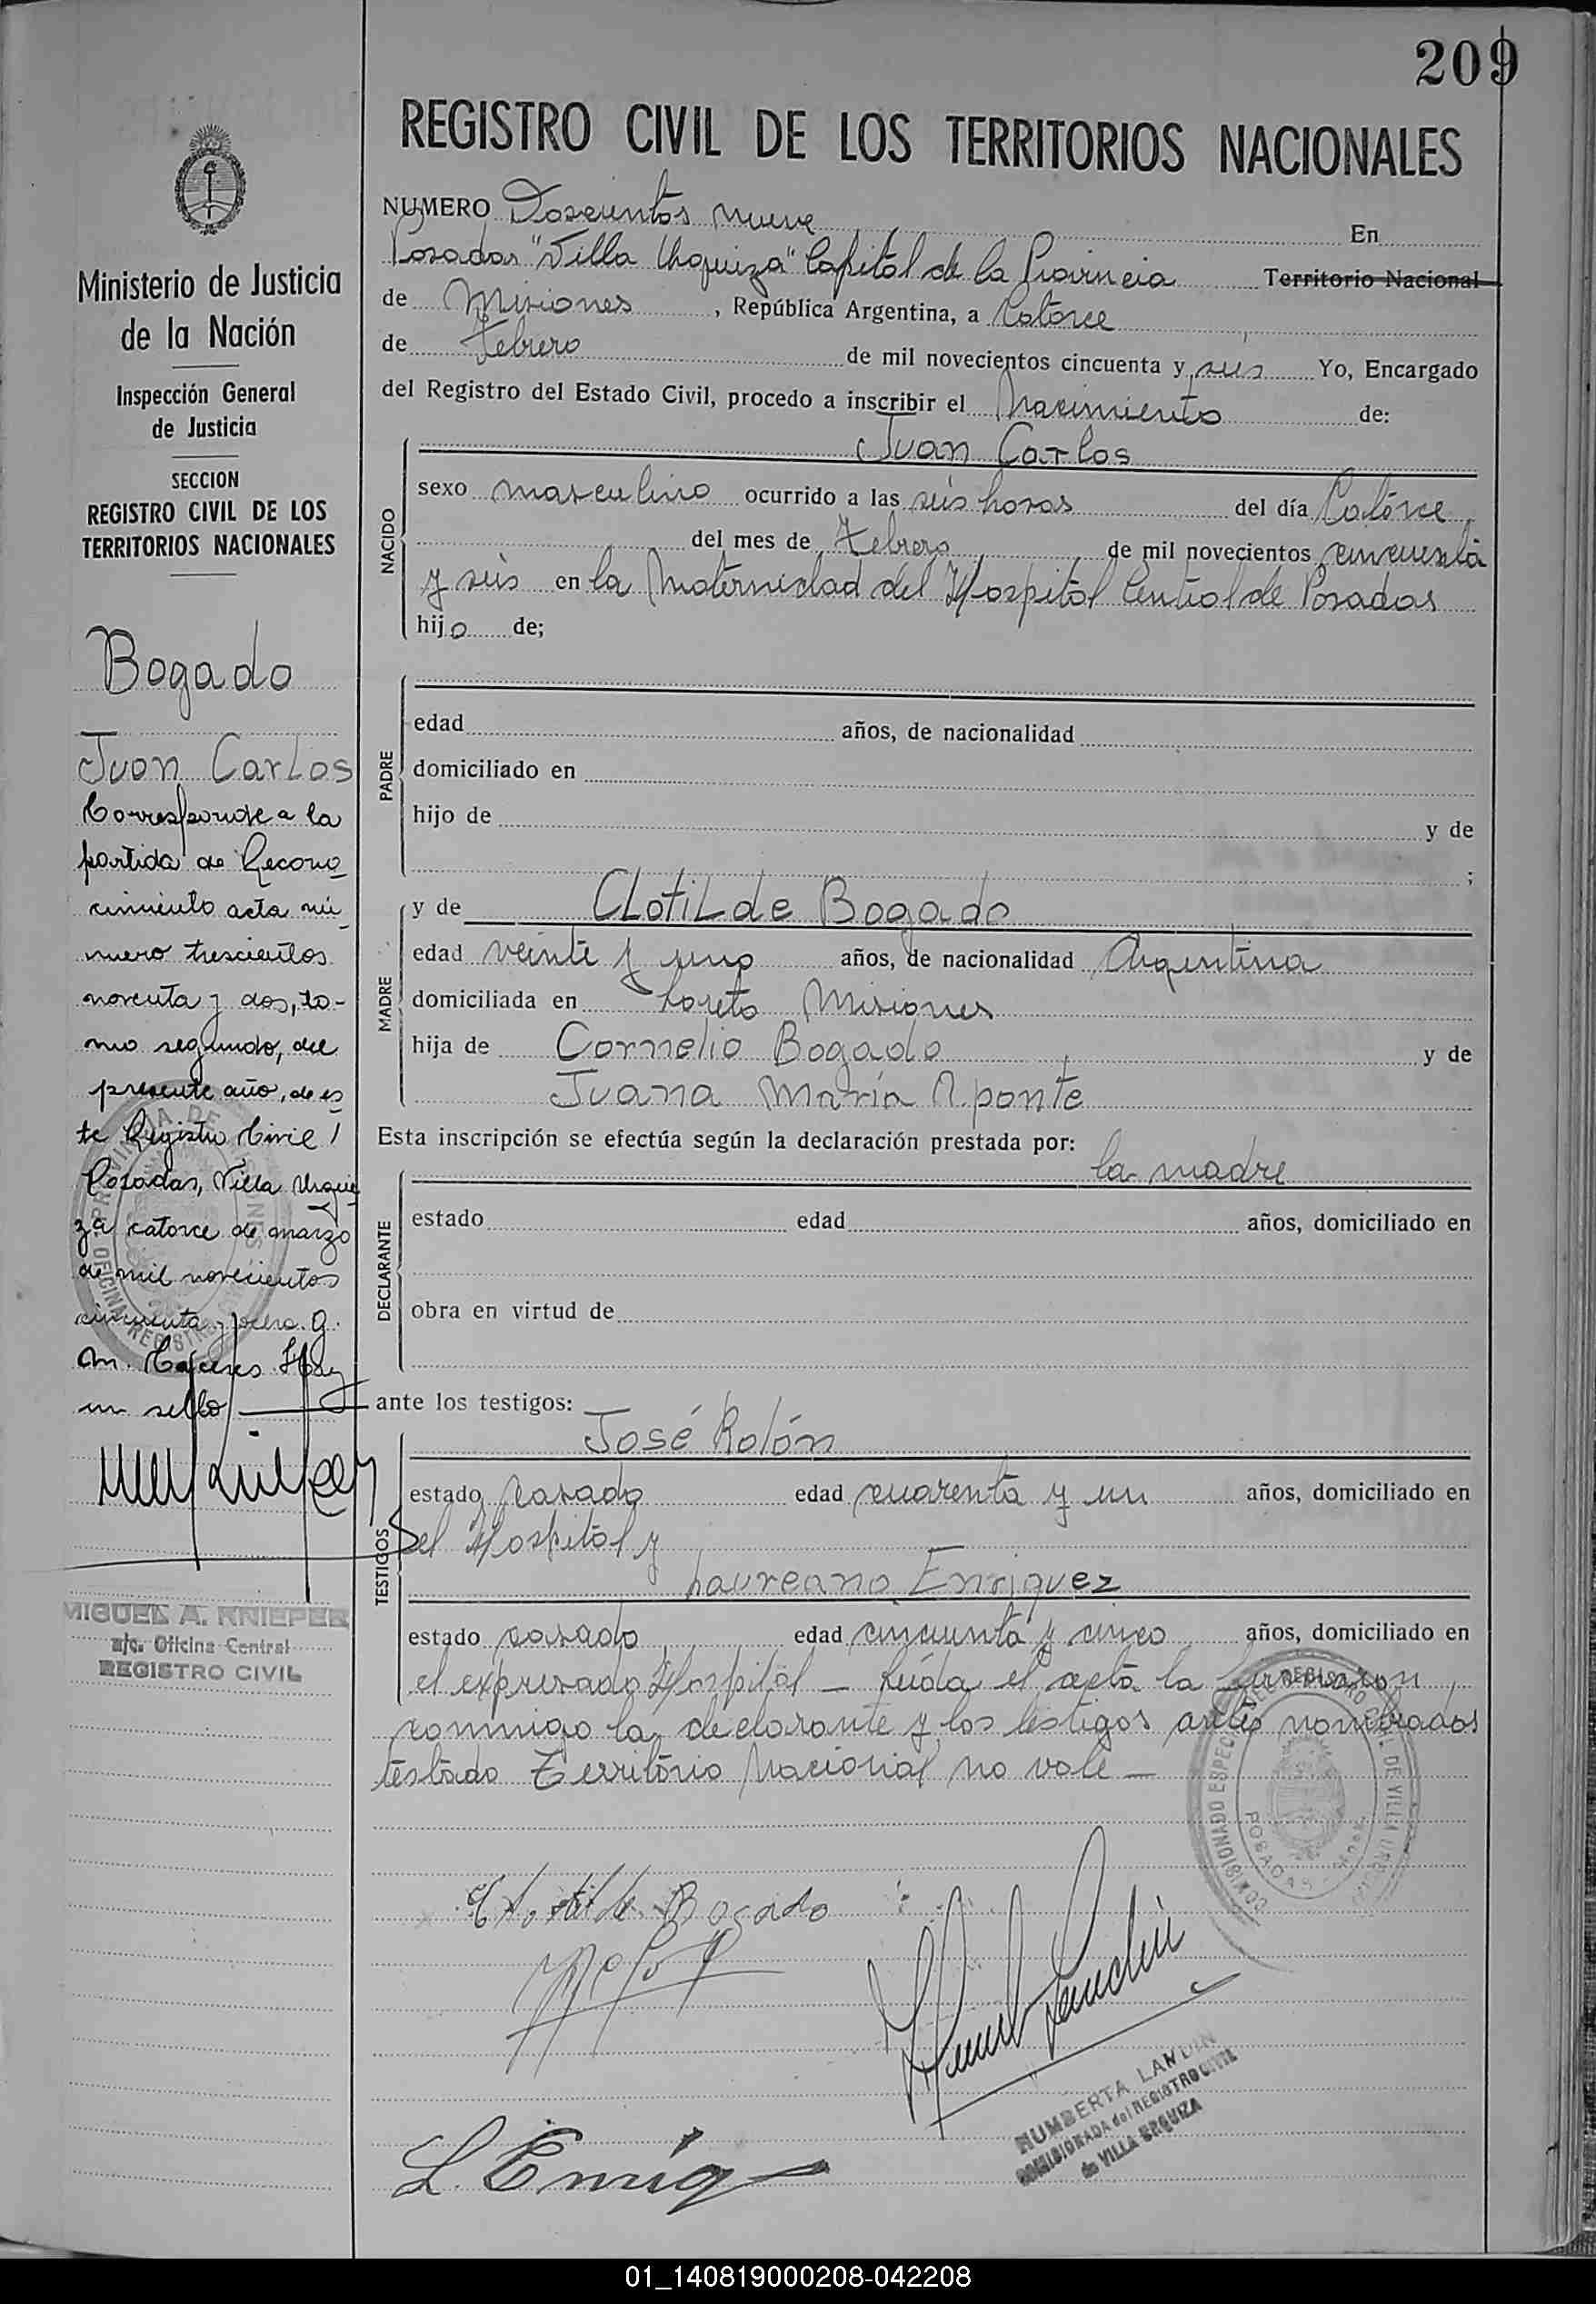 209
REGISTRO CIVIL DE LOS TERRITORIOS NACIONALES
Ministerio de Justicia
de la Nación
Inspección General
de Justicia
SECCION
REGISTRO CIVIL DE LOS
TERRITORIOS NACIONALES
Bogado
Juan Carlos
Corresponde a la
partida de Recono
cimiento acta nú
mero trescientos
noventa y dos, to-
mo segundo, del
presente año, de es
te Registro Civil /
Posadas, Villa Urqui
za catorce de marzo
de mil novecientos
cincuenta y
un sello
MIGUEL A. KNIEPER
a/c. Oficina Central
REGISTRO CIVIL
NUMERO Doscientos nueve En
Posadas "Villa Urquiza" Capital de la Provincia Territorio Nacional
de Misiones, República Argentina, a Catorce
de Febrero de mil novecientos cincuenta y seis Yo, Encargado
del Registro del Estado Civil, procedo a inscribir el Nacimiento de:
NACIDO
Juan Carlos
sexo masculino ocurrido a las seis horas del día Catorce
del mes de Febrero de mil novecientos cincuenta
y seis en la Maternidad del Hospital Central de Posadas
hijo de;
PADRE
edad años, de nacionalidad
domiciliado en
hijo de y de
;
MADRE
y de Clotilde Bogado
edad veinte y uno años, de nacionalidad Argentina
domiciliada en Loreto Misiones
hija de Cornelio Bogado y de
Juana María Aponte
Esta inscripción se efectúa según la declaración prestada por:
la madre
DECLARANTE
estado edad años, domiciliado en
obra en virtud de
ante los testigos:
TESTIGOS
José Rolón
estado casado edad cuarenta y un años, domiciliado en
el Hospital y
Laureano Enriquez
estado casado edad cincuenta y cinco años, domiciliado en
el expresado Hospital — Leída el acta la firmaron
conmigo la declarante y los testigos antes nombrados
testado Territorio Nacional no vale —
Clotilde Bogado
L. Enriq
HUMBERTA LANDIN
COMISIONADA del REGISTRO CIVIL
de VILLA URQUIZA
01_140819000208-042208